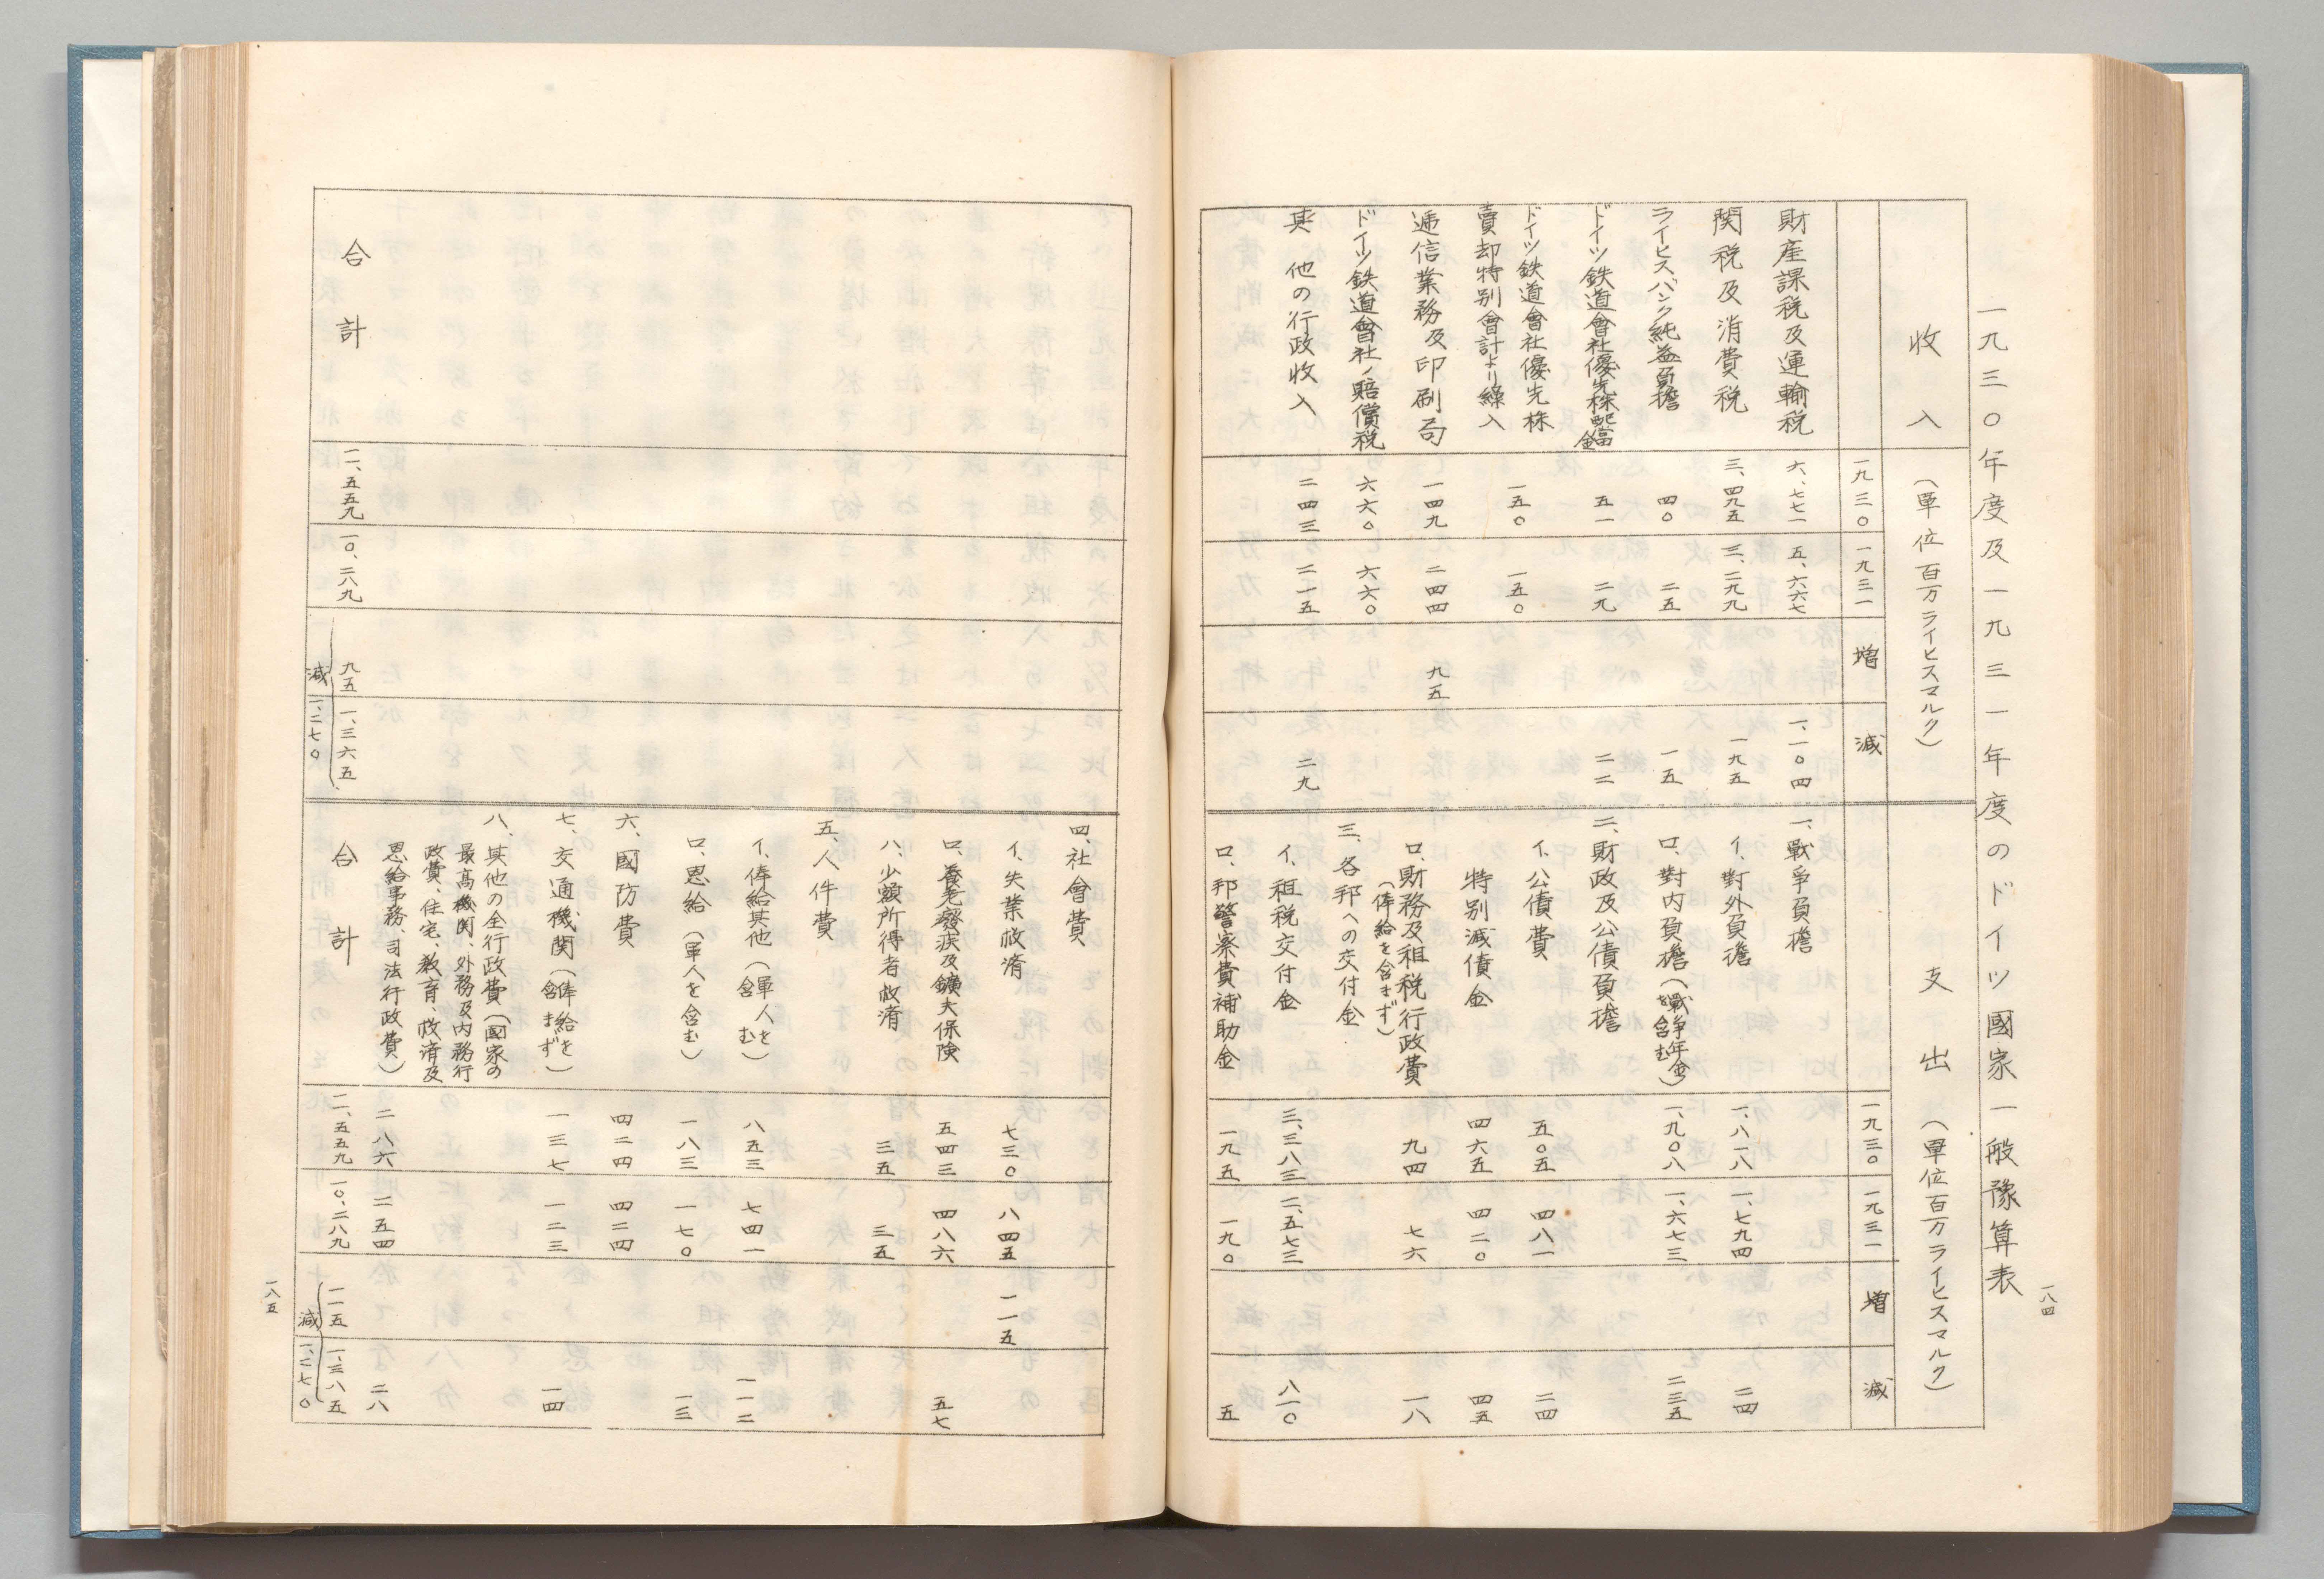 一八四
一九三〇年度及一九三一年度のドイツ國家一般豫算表
收入 (單位百万ライヒスマルク)
一九三〇 一九三一 増 減
財産課税及運輸税 六、七七一 五、六六七 一、一〇四
関税及消費税 三、四九五 三、二九九 一九五
ライヒスバンク純益負擔 四〇 二五 一五
ドイツ鉄道會社優先株配當金 五一 二九 二二
ドイツ鉄道會社優先株
賣却特別會計より繰入 一五〇 一五〇
逓信業務及印刷局 一四九 二四四 九五
ドイツ鉄道會社ノ賠償税 六六〇 六六〇
其他の行政收入 二四三 二一五 二九
支出 (單位百万ライヒスマルク)
一九三〇 一九三一 増 減
一、戰爭負擔
イ、對外負擔 一、八一八 一、七九四 二四
ロ、對内負擔(戰爭年金を含む) 一、九〇八 一、六七三 二三五
二、財政及公債負擔
イ、公債費 五〇五 四八一 二四
特別減債金 四六五 四二〇 四五
ロ、財務及租税行政費
(俸給を含まず) 九四 七六 一八
三、各邦への交付金
イ、租税交付金 三、三八三 二、五七三 八一〇
ロ、邦警察費補助金 一九五 一九〇 五
合計 一一、五五九 一〇、二八九 九五 一、三六五
減 一、二七〇
四、社會費
イ、失業救済 七三〇 八四五 一一五
ロ、養老癈疾及鑛夫保険 五四三 四八六 五七
ハ、少額所得者救済 三五 三五
五、人件費
イ、俸給其他(軍人を含む) 八五三 七四一 一一二
ロ、恩給(軍人を含む) 一八三 一七〇 一三
六、國防費 四二四 四二四
七、交通機関(俸給を含まず) 一三七 一二三 一四
八、其他の全行政費(國家の
最高機関、外務及内務行
政費、住宅、教育、救済及
恩給事務、司法行政費) 二八六 二五四 二八
合計 一一、五五九 一〇、二八九 一一五 一、三八五
減 一、二七〇
一八五